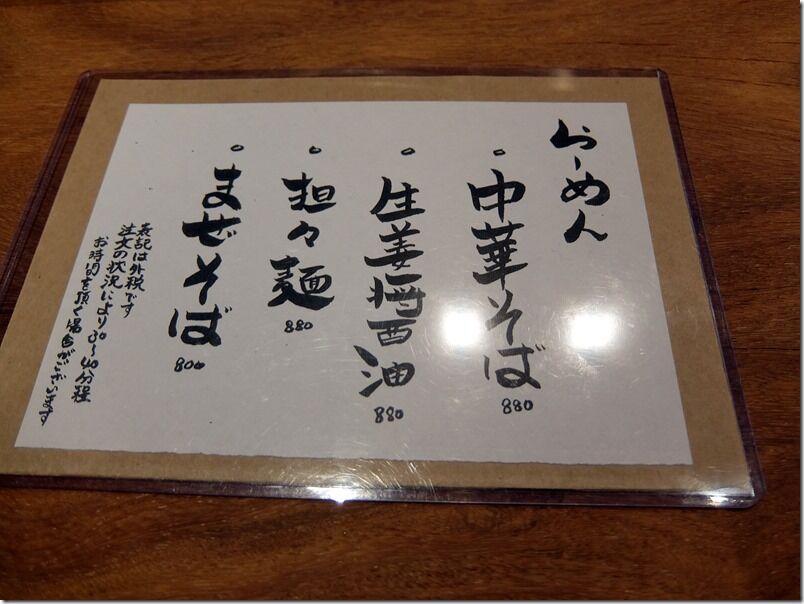 らーめん
。中華そば
880
。生姜醤油
880
。担々麺
880
。まぜそば
800
表記は外税です
注文の状況により30〜40分程
お時間を頂く場合がございます